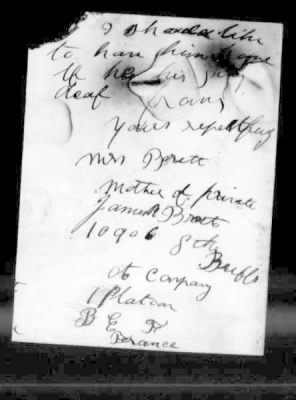 I should like
to have him home
if he is
deaf
yours respectfuly
Mrs Brett
Mother of private
James Brett
10906 8th
Buffs
A Company
1 Platoon
B E F
France